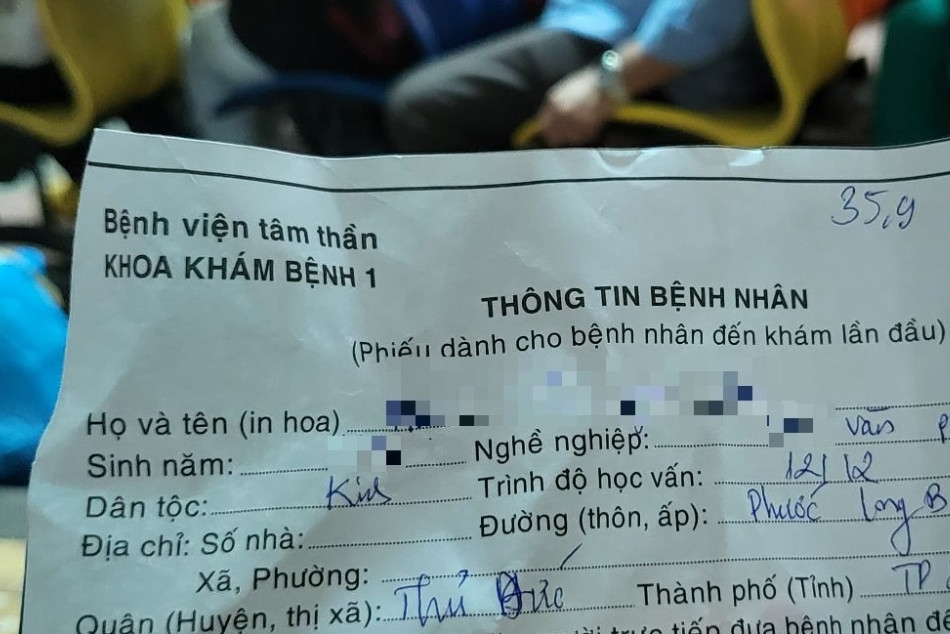 35,9
Bệnh viện tâm thần
KHOA KHÁM BỆNH 1
THÔNG TIN BỆNH NHÂN
(Phiếu dành cho bệnh nhân đến khám lần đầu)
Họ và tên (in hoa)
Sinh năm: Nghề nghiệp: văn
Dân tộc: Kinh Trình độ học vấn: 12/12
Địa chỉ: Số nhà: Đường (thôn, ấp): Phước Long B
Xã, Phường:
Quận (Huyện, thị xã): Thủ Đức Thành phố (Tỉnh) TP
trực tiếp đưa bệnh nhân